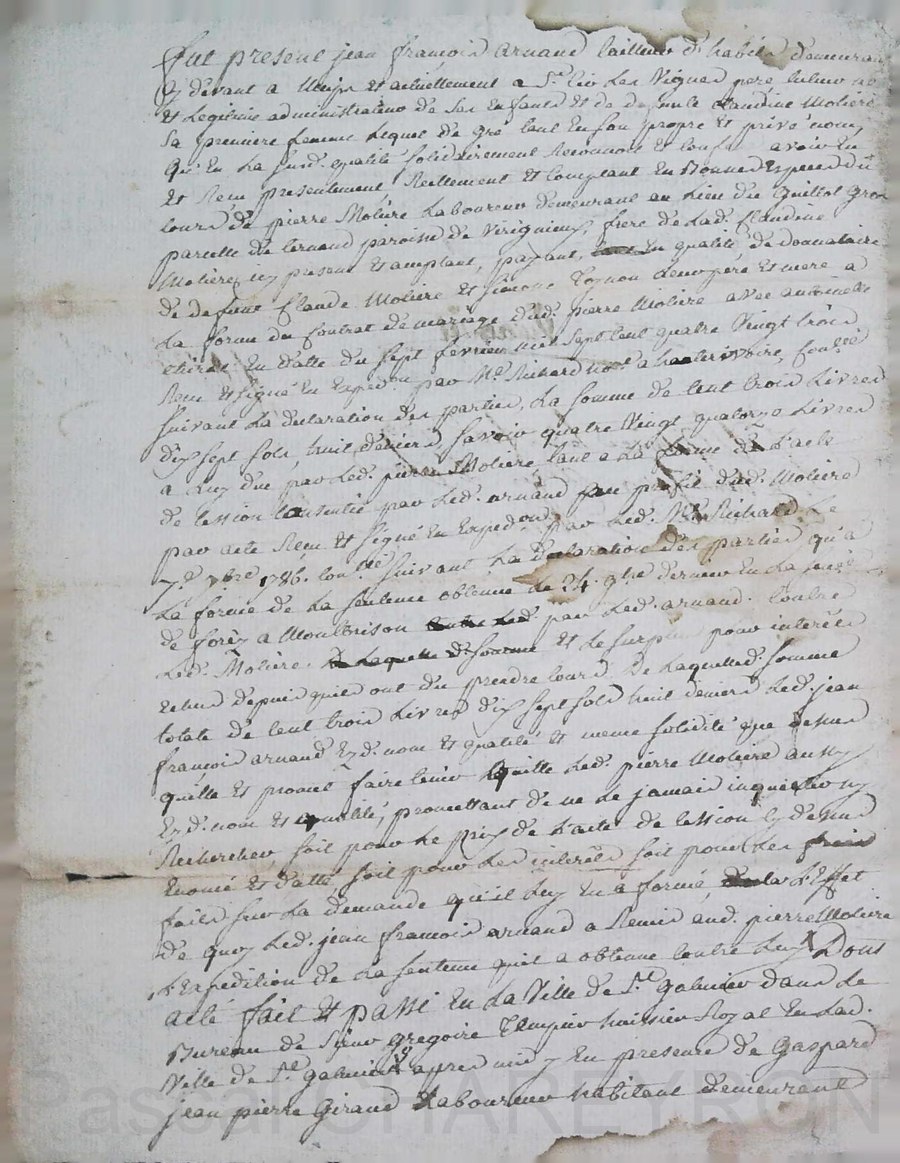 fut present jean francois arnaud tailleur d'habits demeurant
cy devant a et actuellement a St Cir les Vignes pere tuteur et
et Legitime administrateur de ses Enfants et de defunte Claudine Moliere
Sa premiere femme Lequel de gré tant En son propre et privé nom
qu'En La susd. qualité solidairement Reconnoit et confesse avoir Eu
et Recu presentement Reellement et Comptant En Bonnes Especes du
cours de pierre Moliere Laboureur demeurant au Lieu du Guillot Gros
parcelle de paroisse de Virigneux frere de Lad. Claudine
Moliere icy present Et acceptant, payant, En qualité de donnataire
de defunt Claude Moliere et Simone Leurs père Et mere a
La forme du Contrat de mariage dud. pierre Moliere avec antoinette
En datte du sept fevrier mil Sept Cent quatre Vingt trois
Recu et signé En Expedon par Me Richard nore a , conllé
suivant La declaration des parties, La somme de Cent trois Livres
dix sept sols huit deniers, savoir quatre Vingt quatorze Livres
a Luy due par Led. pierre Moliere, tant a La forme de L'acte
de Cession Consentie par Led. arnaud au profit dud. Moliere
par acte Recu et signé en Expedon par Led. Me Richard Le
7e 7bre 1786. conllé suivant La declaration des parties qu'a
La forme de La sentence obtenue Le 24. 9bre dernier En La
de forez a Montbrison par Led. arnaud. Contre
Led. Moliere, et Le surplus pour interets
Echus depuis qu'ils ont du prendre cours. De Laquelle d. somme
totale de Cent trois Livres dix sept sols huit deniers Led. jean
francois arnaud Ez d. nom et qualité et meme solidité que dessus
quitte Et promet faire tenir quitte Led. pierre Moliere aussy
Ez d. nom et qualité, promettant de ne Le jamais inquietter ny
Rechercher, soit pour Le prix de L'acte de Cession Cy dessus
Enoncé et datté soit pour Les interets soit pour Les frais
faits sur La demande qu'il Luy En a formé a L'Effet
de quoy Led. jean francois arnaud a Remis aud. pierre Moliere
L'Expedition de La sentence qu'il a obtenue Contre Luy Dont
acte fait et passé En La Ville de St. Galmier dans Le
Bureau de Sieur Gregoire huissier Royal En Lad.
Ville de St. Galmier apres midy En presence de Gaspard
jean pierre Giraud Laboureur habitant demeurant
Pascal CHAREYRON